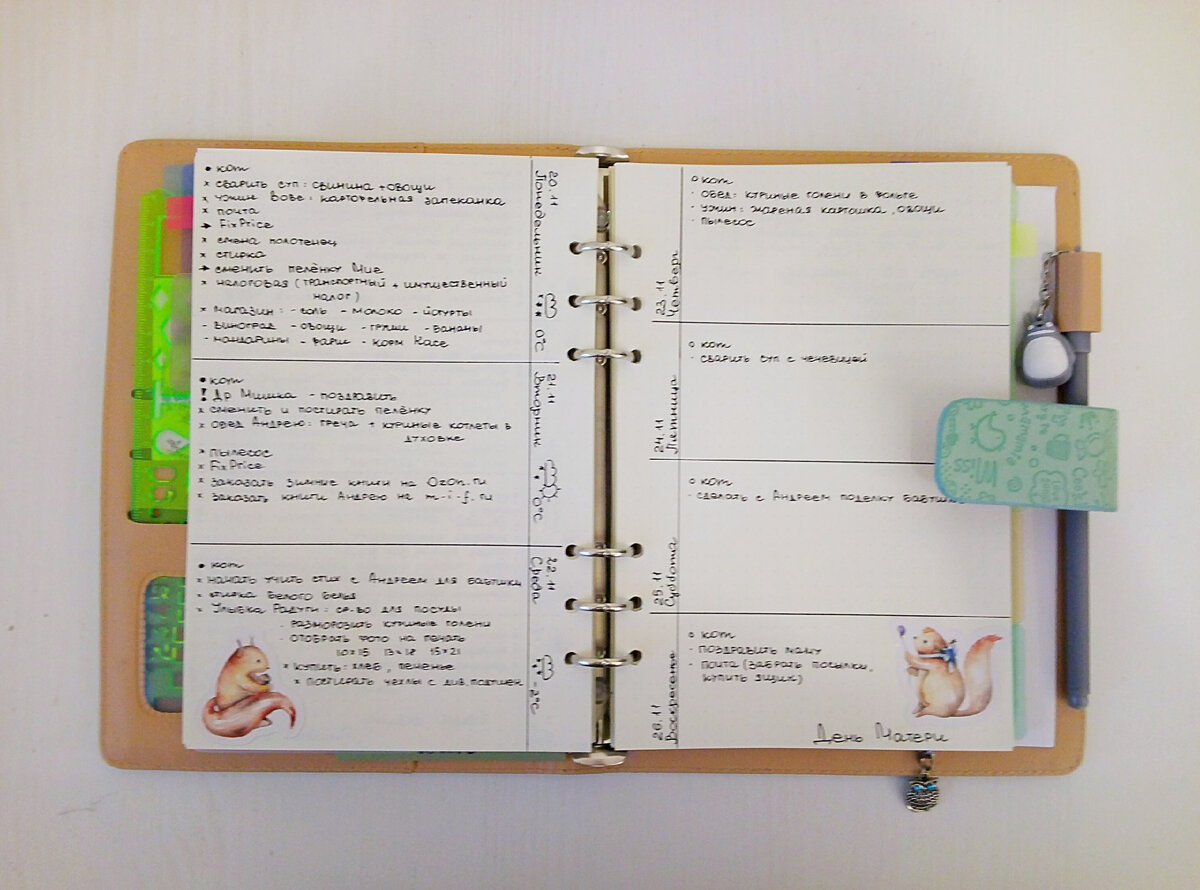 • кот
× сварить суп: свинина + овощи
× ужин Вове: картофельная запеканка
× почта
→ FixPrice
× смена полотенец
× стирка
→ сменить пелёнку Мие
× налоговая (транспортный + имущественный
налог)
× магазин: - соль - молоко - йогурты
- виноград - овощи - груши - бананы
- мандарины - фарш - корм Касе
20.11
Понедельник
0°C
• кот
! Др Мишка - поздравить
× сменить и постирать пелёнку
× обед Андрею: греча + куриные котлеты в
духовке
× пылесос
× FixPrice
× заказать зимние книги на Ozon.ru
× заказать книги Андрею на m-i-f.ru
21.11
Вторник
0°C
• кот
× начать учить стих с Андреем для бабушки
× стирка белого белья
× Улыбка Радуги: ср-во для посуды
- разморозить куриные голени
- отобрать фото на печать
10×15 13×18 15×21
× купить: хлеб, печенье
× постирать чехлы с див. подушек
22.11
Среда
-2°C
○ кот
- обед: куриные голени в фольге
- ужин: жареная картошка, овощи
- пылесос
23.11
Четверг
○ кот
- сварить суп с чечевицей
24.11
Пятница
○ кот
- сделать с Андреем поделку
25.11
Суббота
○ кот
- поздравить маму
- почта (забрать посылки,
купить ящик)
26.11
Воскресенье
День Матери